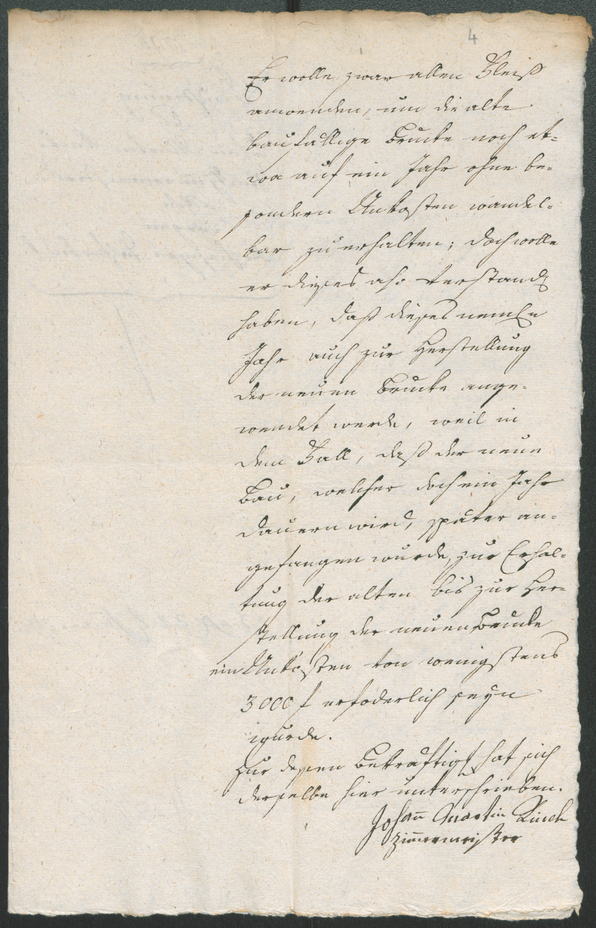 4
Er wolle zwar allen Fleiß
anwenden, um die alte
baufällige Brucke noch et=
wa auf ein Jahr ohne be=
sondern Unkosten wandel=
bar zu erhalten; doch wolle
er dieses also verstand
haben, daß dieses nemliche
Jahr auch zur Herstellung
der neuen Brucke ange=
wendet werde, weil in
dem Fall, daß der neue
Bau, welcher doch ein Jahr
dauern wird, später an=
gefangen wurde, zur Erhal=
tung der alten bis zur Her=
stellung der neuen Brucke
ein Unkosten von wenigstens
3000 f erforderlich seyn
wurde.
Zur dessen Bekräftigt hat sich
derselbe hier unterschrieben.
Johann Martin
Zimmermeister